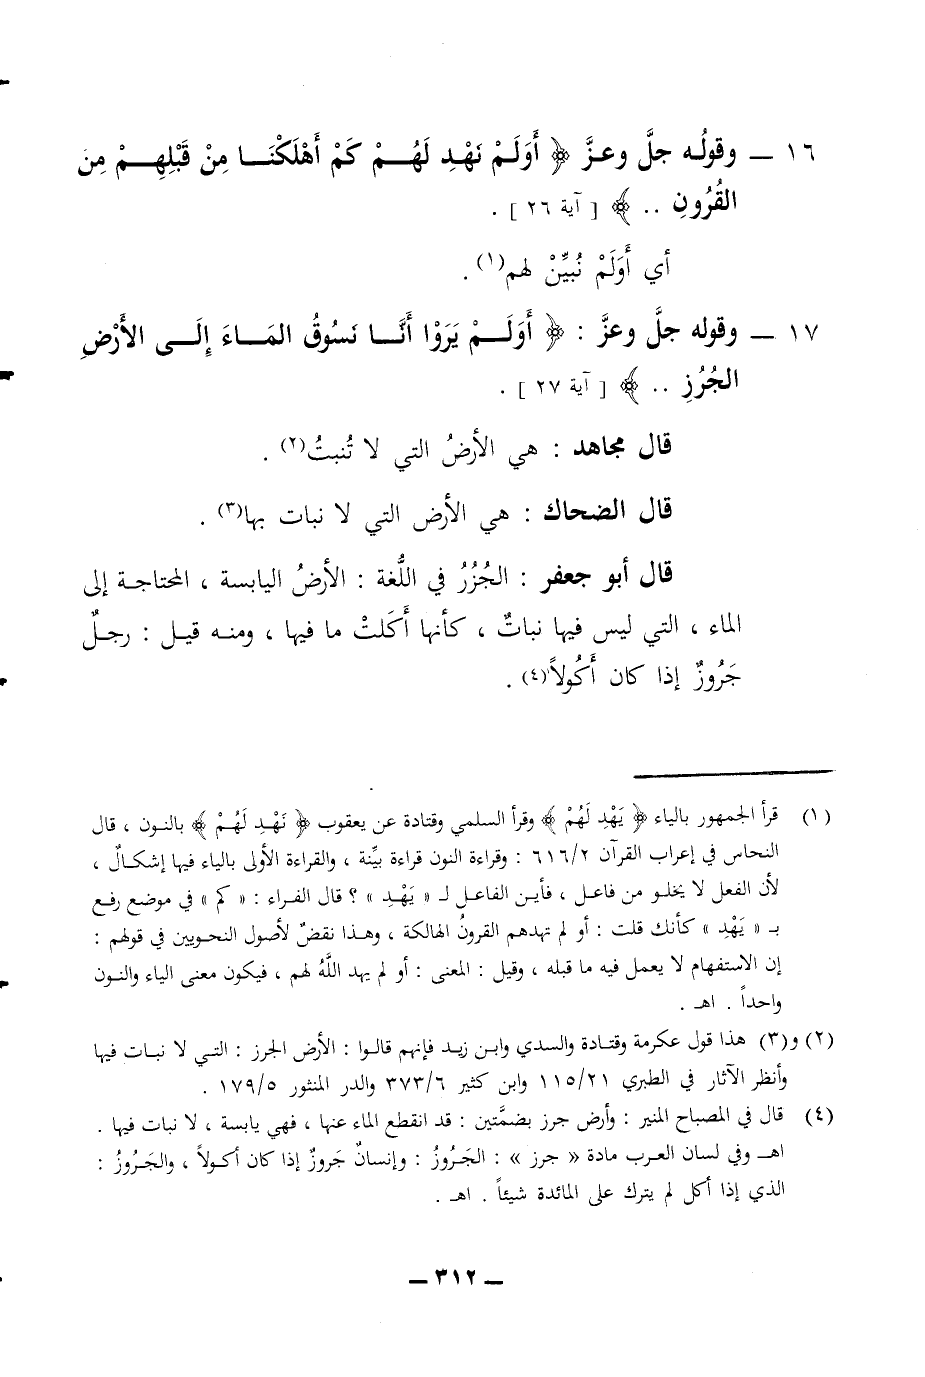 ١٦ ــ وقولُه جلَّ وعزَّ ﴿ أَوَلَمْ نَهْدِ لَهُمْ كَمْ أَهْلَكْنَا مِنْ قَبْلِهِمْ مِنَ
القُرُونِ .. ﴾ [ آية ٢٦ ] .
أي أَوَلَمْ نُبيِّنْ لهم(١) .
١٧ ــ وقوله جلَّ وعزَّ : ﴿ أَوَلَمْ يَرَوْا أَنَّا نَسُوقُ المَاءَ إِلَى الأَرْضِ
الجُرُزِ .. ﴾ [ آية ٢٧ ] .
قال مجاهد : هي الأرضُ التي لا تُنبتُ(٢) .
قال الضحاك : هي الأرض التي لا نبات بها(٣) .
قال أبو جعفر : الجُرُزُ في اللُّغة : الأرضُ اليابسة ، المحتاجة إلى
الماء ، التي ليس فيها نباتٌ ، كأنها أَكَلتْ ما فيها ، ومنه قيل : رجلٌ
جَرُوزٌ إذا كان أَكُولاً(٤) .
(١) قرأ الجمهور بالياء ﴿ يَهْدِ لَهُمْ ﴾ وقرأ السلمي وقتادة عن يعقوب ﴿ نَهْدِ لَهُمْ ﴾ بالنون ، قال
النحاس في إعراب القرآن ٦١٦/٢ : وقراءة النون قراءة بيِّنة ، والقراءة الأولى بالياء فيها إشكالٌ ،
لأن الفعل لا يخلو من فاعل ، فأين الفاعل لـ « يَهْدِ » ؟ قال الفراء : « كم » في موضع رفع
بـ « يَهْدِ » كأنك قلت : أو لم تهدهم القرونُ الهالكة ، وهذا نقضٌ لأصول النحويين في قولهم :
إن الاستفهام لا يعمل فيه ما قبله ، وقيل : المعنى : أو لم يهد اللَّهُ لهم ، فيكون معنى الياء والنون
واحداً . اهـ .
(٢) و(٣) هذا قول عكرمة وقتادة والسدي وابن زيد فإنهم قالوا : الأرض الجرز : التي لا نبات فيها
وأنظر الآثار في الطبري ١١٥/٢١ وابن كثير ٣٧٣/٦ والدر المنثور ١٧٩/٥ .
(٤) قال في المصباح المنير : وأرض جرز بضمَّتين : قد انقطع الماء عنها ، فهي يابسة ، لا نبات فيها .
اهـ وفي لسان العرب مادة « جرز » : الجَرُوزُ : وإنسانٌ جَروزٌ إذا كان أكولاً ، والجَرُوزُ :
الذي إذا أكل لم يترك على المائدة شيئاً . اهـ .
ــ ٣١٢ ــ